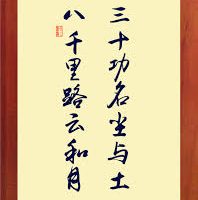 三十功名尘与土
八千里路云和月